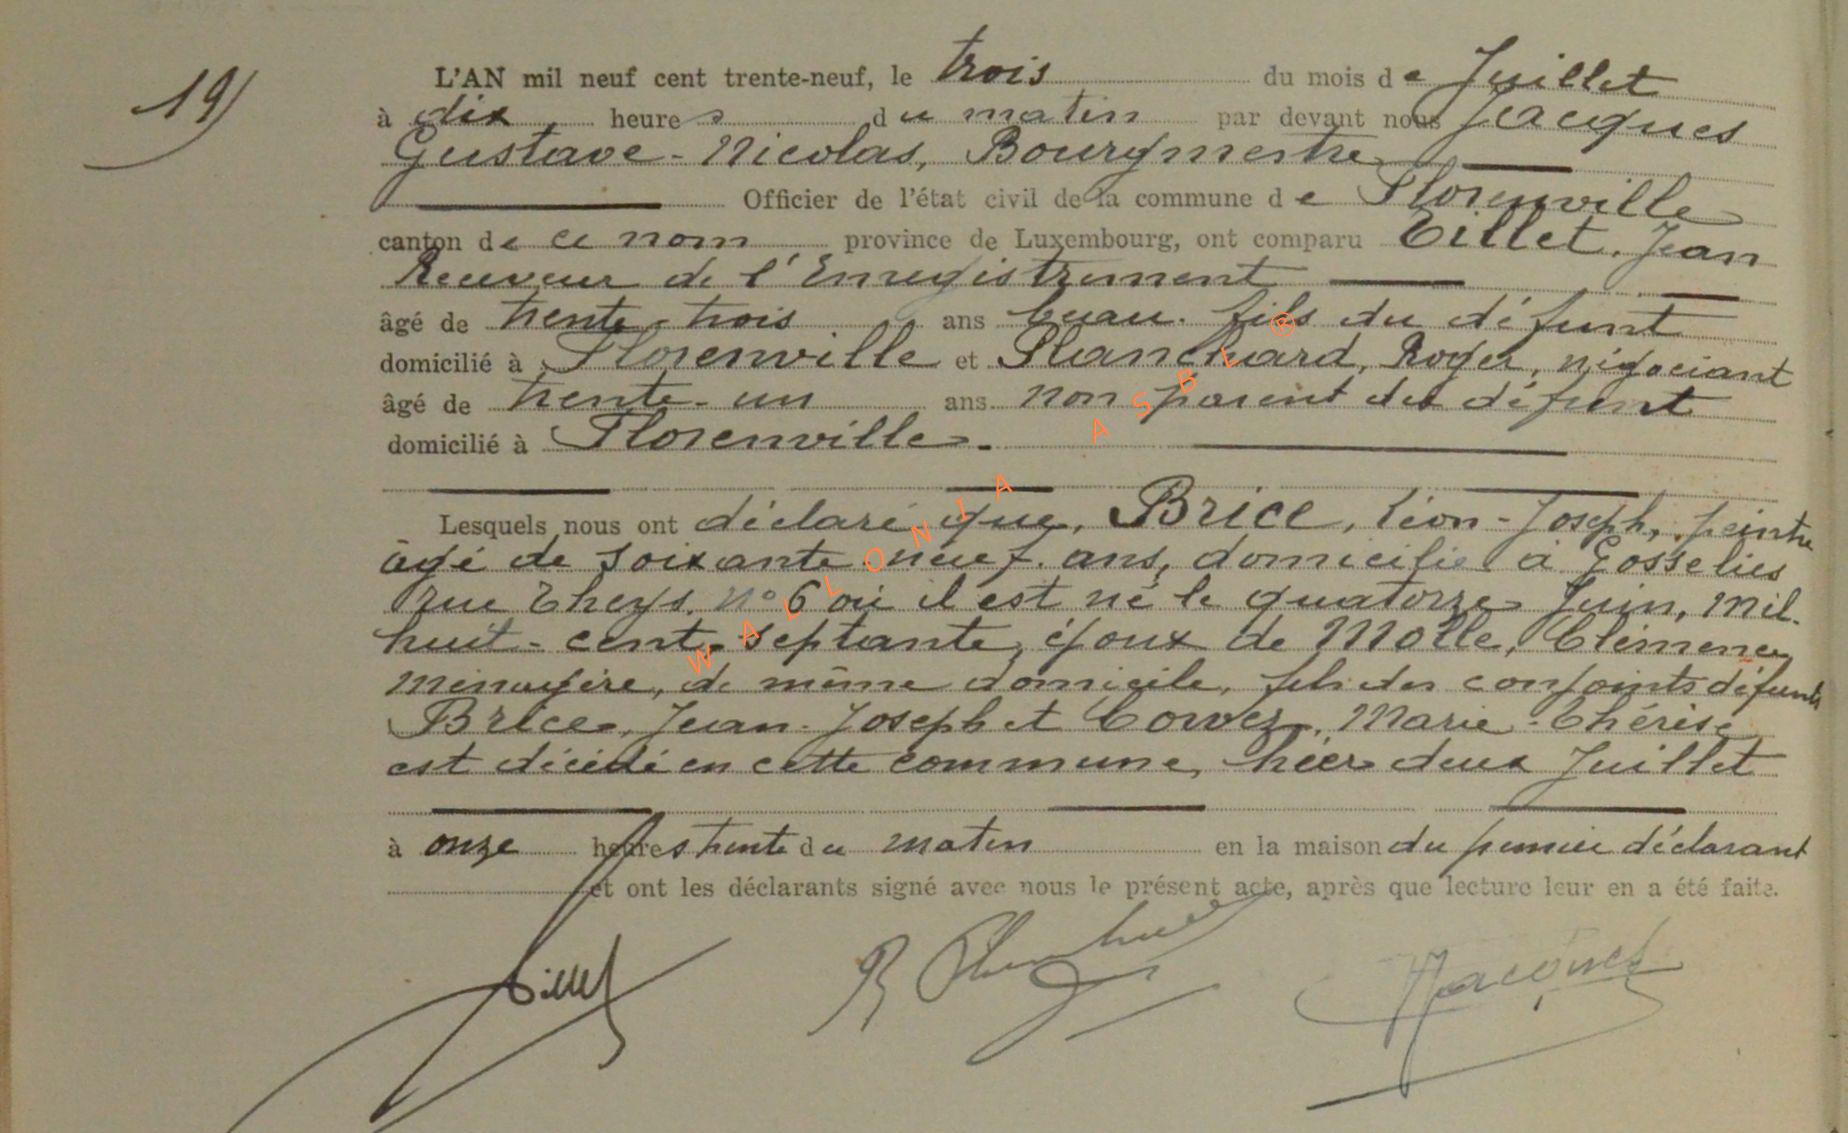 19)
L'AN mil neuf cent trente-neuf, le trois du mois de Juillet
à dix heures du matin par devant nous Jacques
Gustave-Nicolas, Bourgmestre
Officier de l'état civil de la commune de Florenville
canton de ce nom province de Luxembourg, ont comparu Tillet, Jean
Receveur de l'Enregistrement
âgé de trente-trois ans beau-fils du défunt
domicilié à Florenville et Planchard, Roger, négociant
âgé de trente-un ans non parent du défunt
domicilié à Florenville.
Lesquels nous ont déclaré que, Brice, Léon-Joseph, peintre
âgé de soixante neuf ans, domicilié à Gosselies
rue Theys n° 6 où il est né le quatorze Juin, mil-
huit-cent septante, époux de Molle, Clémence
ménagère, de même domicile, fils des conjoints défunts
Brice, Jean-Joseph et Corvez, Marie-Thérèse
est décédé en cette commune, hier deux Juillet
à onze heures trente du matin en la maison du premier déclarant
et ont les déclarants signé avec nous le présent acte, après que lecture leur en a été faite.
Tillet R Planchard GJacques
WALLONIA ASBL ®